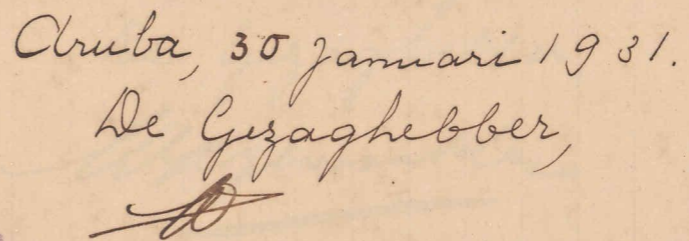 Aruba, 30 Januari 1931.
De Gezaghebber,